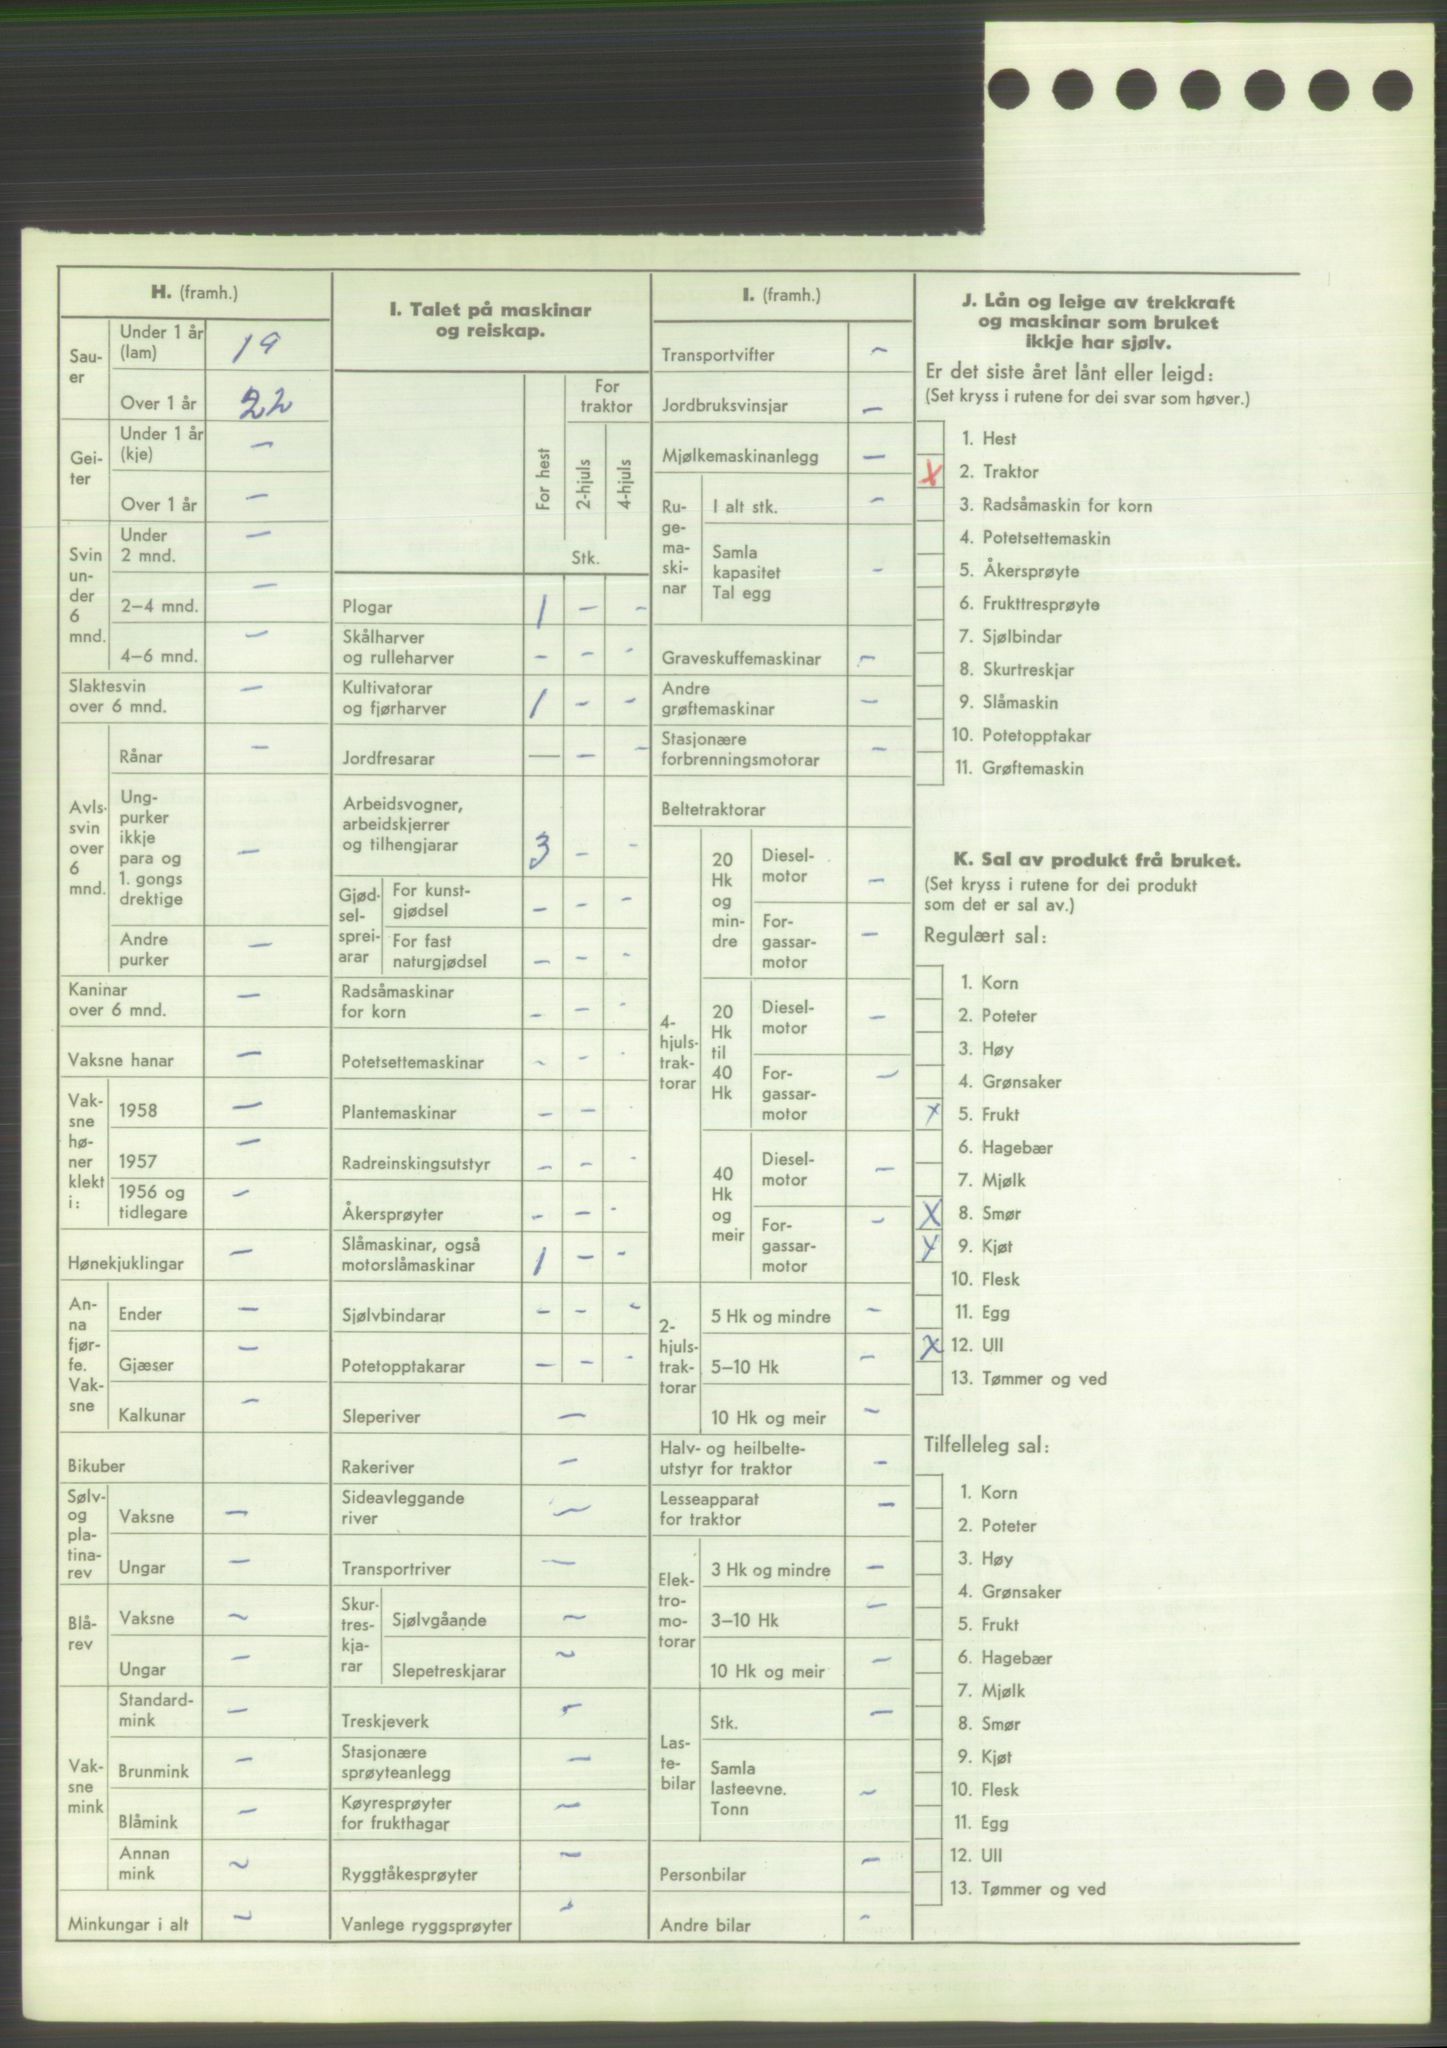 H. (framh.)
Sau-
er
Under 1 år
(lam)
19
Over 1 år
22
Gei-
ter
Under 1 år
(kje)
–
Over 1 år
–
Svin
un-
der
6
mnd.
Under
2 mnd.
–
2–4 mnd.
–
4–6 mnd.
–
Slaktesvin
over 6 mnd.
–
Avls-
svin
over
6
mnd.
Rånar
–
Ung-
purker
ikkje
para og
1. gongs
drektige
–
Andre
purker
–
Kaninar
over 6 mnd.
–
Vaksne hanar
–
Vak-
sne
hø-
ner
klekt
i:
1958
–
1957
–
1956 og
tidlegare
–
Hønekjuklingar
–
An-
na
fjør-
fe.
Vak-
sne
Ender
–
Gjæser
–
Kalkunar
–
Bikuber
Sølv-
og
pla-
tina-
rev
Vaksne
–
Ungar
–
Blå-
rev
Vaksne
–
Ungar
–
Vak-
sne
mink
Standard-
mink
–
Brunmink
–
Blåmink
–
Annan
mink
–
Minkungar i alt
–
I. Talet på maskinar
og reiskap.
For hest
For
traktor
2-hjuls
4-hjuls
Stk.
Plogar
1 – –
Skålharver
og rulleharver
– – –
Kultivatorar
og fjørharver
1 – –
Jordfresarar
– – –
Arbeidsvogner,
arbeidskjerrer
og tilhengjarar
3 – –
Gjød-
sel-
sprei-
arar
For kunst-
gjødsel
– – –
For fast
naturgjødsel
– – –
Radsåmaskinar
for korn
– – –
Potetsettemaskinar
– – –
Plantemaskinar
– – –
Radreinskingsutstyr
– – –
Åkersprøyter
– – –
Slåmaskinar, også
motorslåmaskinar
1 – –
Sjølvbindarar
– – –
Potetopptakarar
– – –
Sleperiver
–
Rakeriver
–
Sideavleggande
river
–
Transportriver
–
Skur-
tres-
kja-
rar
Sjølvgåande
–
Slepetreskjarar
–
Treskjeverk
–
Stasjonære
sprøyteanlegg
–
Køyresprøyter
for frukthagar
–
Ryggtåkesprøyter
–
Vanlege ryggsprøyter
–
I. (framh.)
Transportvifter
–
Jordbruksvinsjar
–
Mjølkemaskinanlegg
–
Ru-
ge-
ma-
ski-
nar
I alt stk.
–
Samla
kapasitet
Tal egg
–
Graveskuffemaskinar
–
Andre
grøftemaskinar
–
Stasjonære
forbrenningsmotorar
–
Beltetraktorar
4-
hjuls-
trak-
torar
20
Hk
og
min-
dre
Diesel-
motor
–
For-
gassar-
motor
–
20
Hk
til
40
Hk
Diesel-
motor
–
For-
gassar-
motor
–
40
Hk
og
meir
Diesel-
motor
–
For-
gassar-
motor
–
2-
hjuls-
trak-
torar
5 Hk og mindre
–
5–10 Hk
–
10 Hk og meir
–
Halv- og heilbelte-
utstyr for traktor
–
Lesseapparat
for traktor
–
Elek-
tro-
mo-
torar
3 Hk og mindre
–
3–10 Hk
–
10 Hk og meir
–
Las-
te-
bilar
Stk.
–
Samla
lasteevne.
Tonn
–
Personbilar
–
Andre bilar
–
J. Lån og leige av trekkraft
og maskinar som bruket
ikkje har sjølv.
Er det siste året lånt eller leigd:
(Set kryss i rutene for dei svar som høver.)
1. Hest
X 2. Traktor
3. Radsåmaskin for korn
4. Potetsettemaskin
5. Åkersprøyte
6. Frukttresprøyte
7. Sjølbindar
8. Skurtreskjar
9. Slåmaskin
10. Potetopptakar
11. Grøftemaskin
K. Sal av produkt frå bruket.
(Set kryss i rutene for dei produkt
som det er sal av.)
Regulært sal:
1. Korn
2. Poteter
3. Høy
4. Grønsaker
X 5. Frukt
6. Hagebær
7. Mjølk
X 8. Smør
X 9. Kjøt
10. Flesk
11. Egg
X 12. Ull
13. Tømmer og ved
Tilfelleleg sal:
1. Korn
2. Poteter
3. Høy
4. Grønsaker
5. Frukt
6. Hagebær
7. Mjølk
8. Smør
9. Kjøt
10. Flesk
11. Egg
12. Ull
13. Tømmer og ved